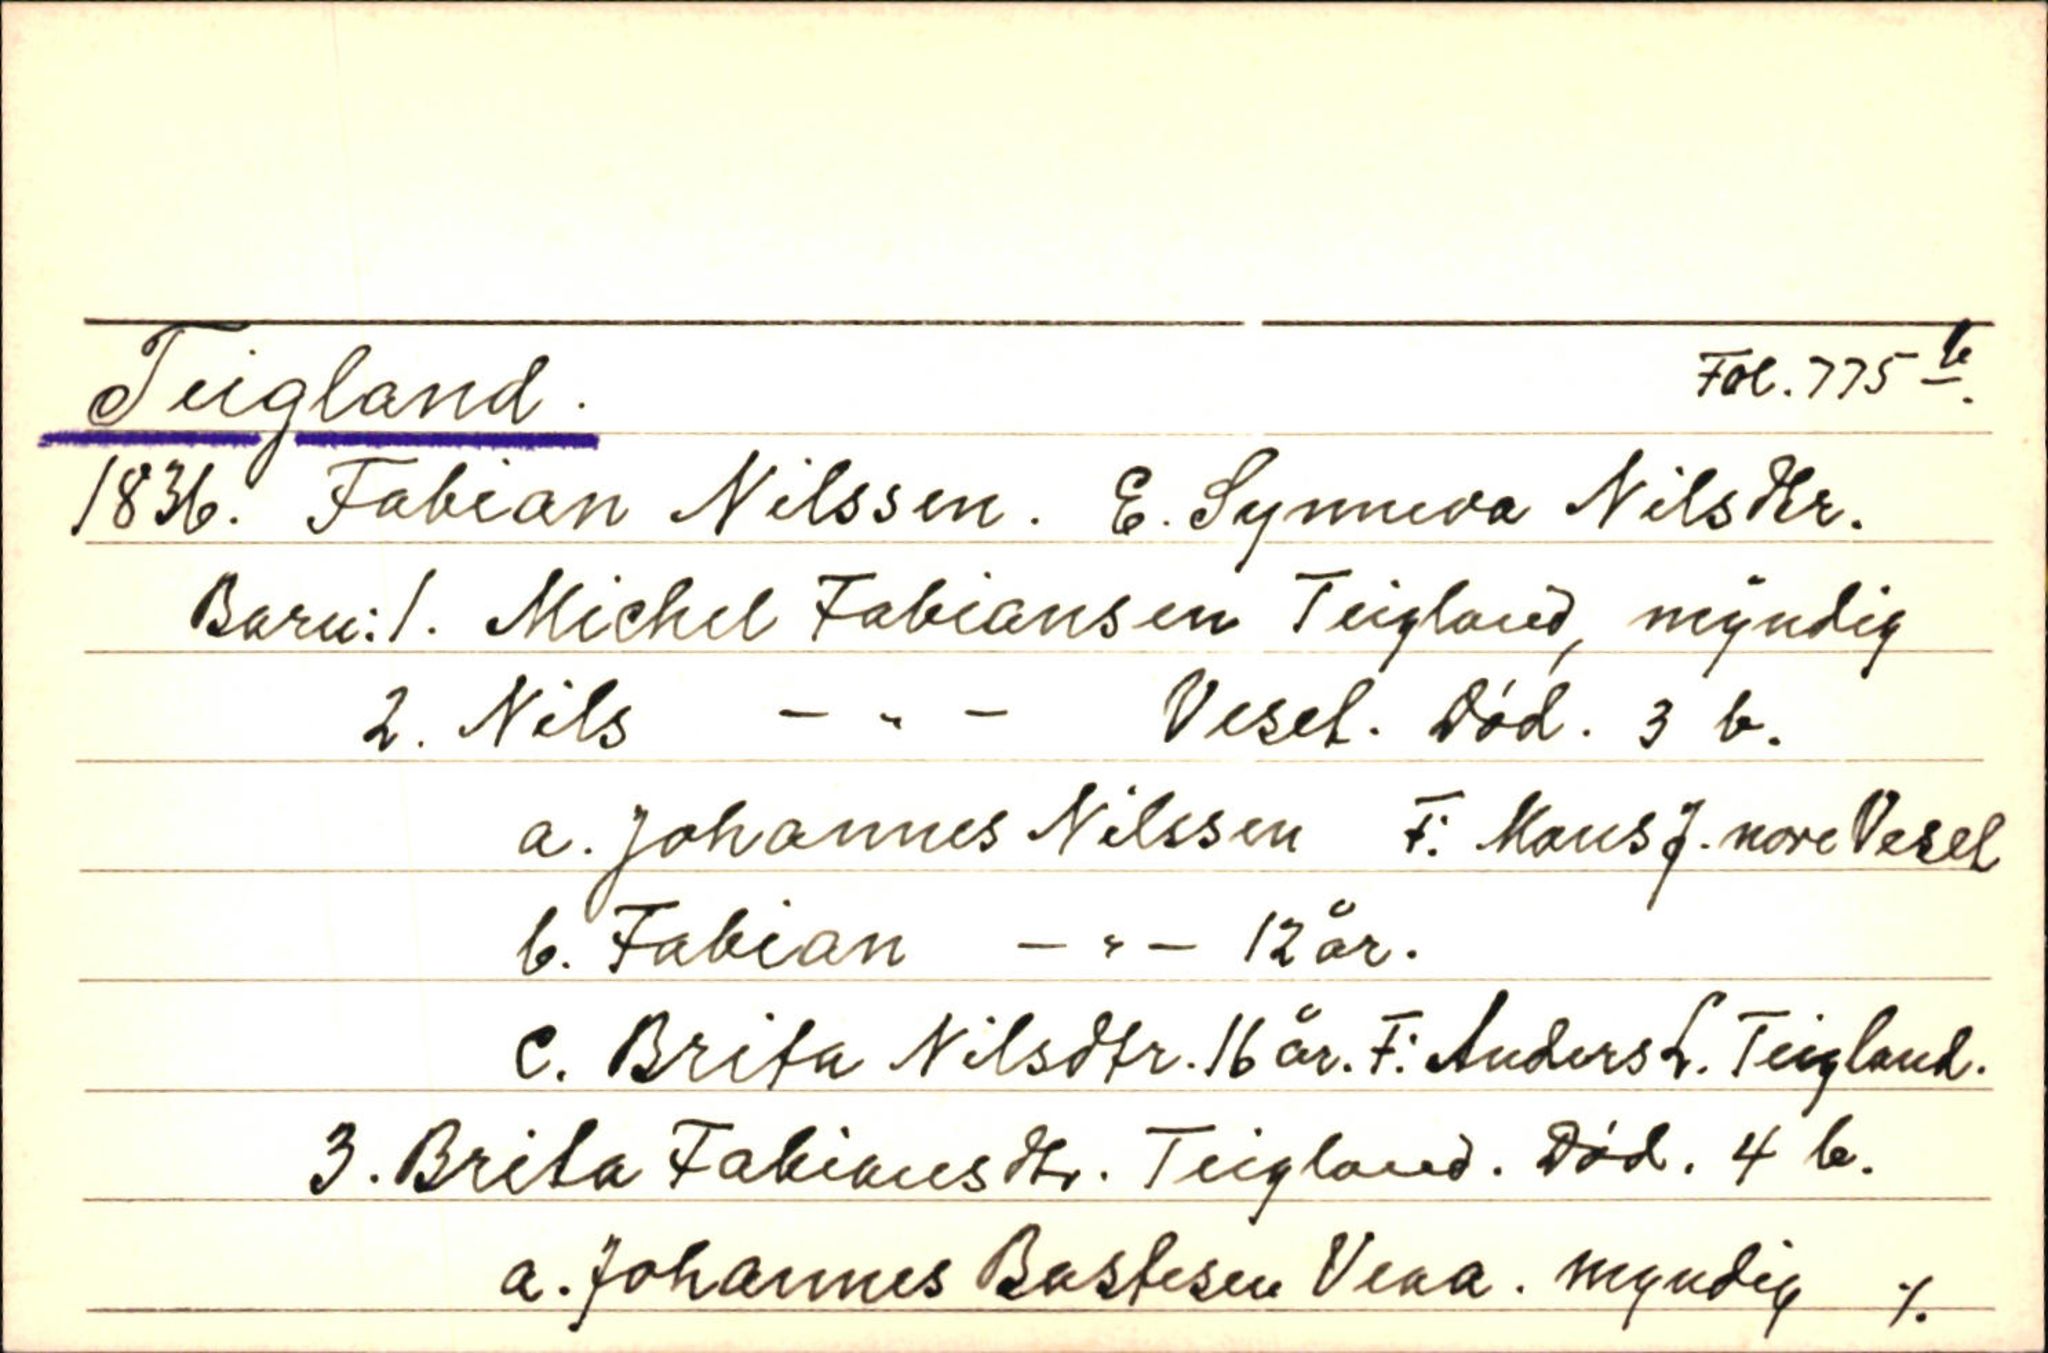 Teigland. Fol. 775 b.
1836. Fabian Nilssen. E. Synneva Nilsdtr.
Barn: 1. Michel Fabiansen Teigland, myndig
2. Nils — " — Vesel. Død. 3 b.
a. Johannes Nilssen F: Mons J. nore Vesel
b. Fabian — " — 12 år.
c. Brita Nilsdtr. 16 år. F: Anders L. Teigland.
3. Brita Fabiansdtr. Teigland. Død. 4 b.
a. Johannes Bastesen Veaa. myndig ./.